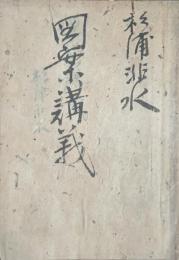 杉浦非水
図案講義